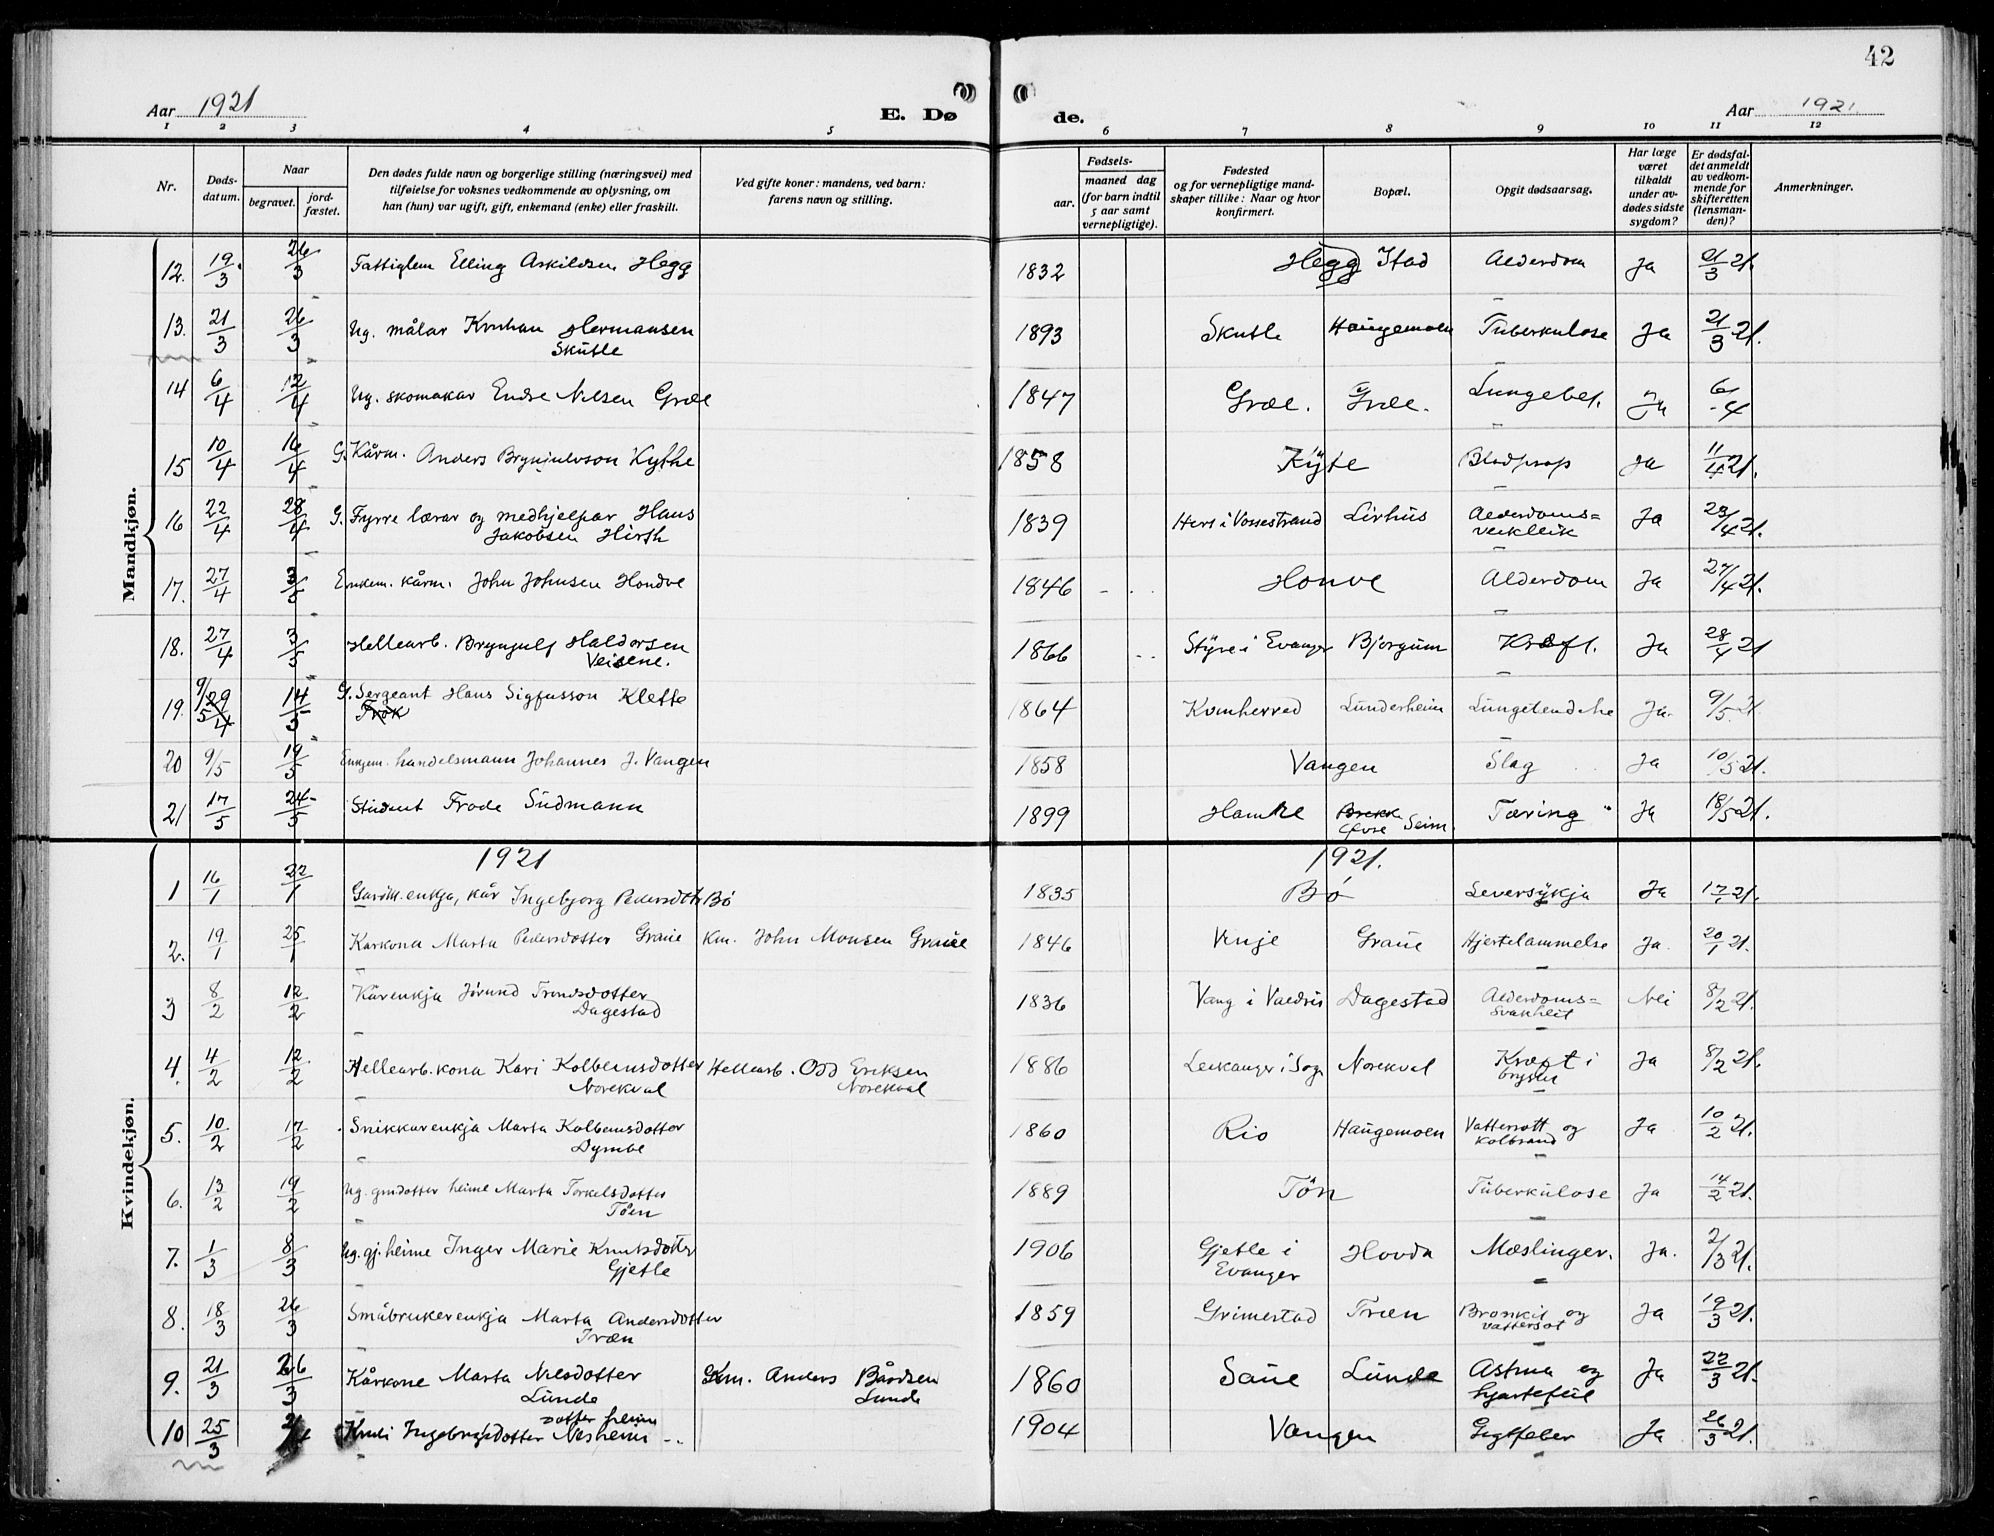 42
Aar 1921
E. Dø de.
Aar 1921.
1 2 3 4 5 6 7 8 9 10 11 12
Nr.
Døds-
datum.
Naar
begravet.
jord-
fæstet.
Den dødes fulde navn og borgerlige stilling (næringsvei) med
tilføielse for voksnes vedkommende av oplysning, om
han (hun) var ugift, gift, enkemand (enke) eller fraskilt.
Ved gifte koner: mandens, ved barn:
farens navn og stilling.
Fødsels-
aar. maaned dag
(for barn indtil
5 aar samt
vernepligtige).
Fødested
og for vernepligtige mand-
skaper tillike: Naar og hvor
konfirmert.
Bopæl.
Opgit dødsaarsag.
Har læge
været
tilkaldt
under av-
dødes sidste
sygdom?
Er dødsfal-
det anmeldt
av vedkom-
mende for
skifteretten
(lensman-
den)?
Anmerkninger.
Mandkjøn.
12. 19/3 26/3 Fattiglem Elling Askildsen Hegg 1832 Hegg Istad Alderdom Ja 21/3 21.
13. 21/3 26/3 Ug. målar Hermansen 1893 Skutle Haugemoen Tuberkulose Ja 21/3 21.
Skutle
14 6/4 12/4 Ug. skomakar Endre Nilsen Græe 1847 Græe. Græe. Lungebet. Ja 6/4
15 10/4 16/4 G. Kårm. Anders Brynjulvson Kythe 1858 Kyte Blodprop Ja 11/4 21.
16 22/4 28/4 G. Fyrre lærar og medhjelpar Hans 1839 Hers i Vossestrand Lirhus Alderdoms= Ja 23/4 21.
Jakobsen Hirth veikleik
17. 27/4 3/5 Enkem. kårm. John Johnsen Hondve 1846 Honve Alderdom Ja 27/4 21.
18. 27/4 3/5 Hellearb. Brynjulf Haldorsen 1866 Styve i Evanger Bjorgum Kræft. Ja 28/4 21
Veisene.
19. 9/5 29/4 14/5 G. Sergeant Hans Sigfusson Klette 1864 Kvinherred Lunderheim Ja. 9/5 21.
Trok
20 9/5 19/5 Enkjem. handelsmann Johannes J. Vangen 1858 Vangen Slag Ja 10/5 21.
21 17/5 24/5 Student Frode Sudmann 1899 Seim. Tæring Ja 18/5 21.
Kvindekjøn.
1921 1921.
1 16/1 22/1 Gardm. enkja, kår Ingebjorg Pedersdotr Bø 1835 Bø Leversykja Ja 17/1 21.
2. 19/1 25/1 Karkona Marta Pedersdotter Graue Km. John Monsen Graue 1846 Vinje Graue Hjertelammelse Ja. 20/1 21.
3 8/2 12/2 Kårenkja Jørund Trondsdotter 1836 Vang i Valdris Dagestad Alderdoms= Nei 8/2 21.
Dagestad svakheit
4. 4/2 12/2 Hellearb. kona Kari Kolbeinsdotter Hellearb. Odd Eriksen 1886 Leikanger i Sogn Norekval Kræft i Ja 8/2 21.
Norekval Norekval brystet
5. 10/2 17/2 Snikkarenkja Marta Kolbeinsdotter 1860 Rio Haugemoen Vattersott og Ja 10/2 21.
Dymbe kolbrand
6. 13/2 19/2 Ug. gmdotter heime Marta Torkelsdotter 1889 Tøn Tuberkulose Ja 14/2 21.
Tøen
7. 1/3 8/3 Ug. gj. heime Inger Marie Knutsdotter 1906 Gjetle i Hovda Mæslinger. Ja. 2/3 21.
Gjetle Evanger
8. 18/3 26/3 Småbrukerenkja Marta Andersdotter 1859 Grimestad Træn Bronkit og Ja 19/3 21.
Træn vattersot
9. 21/3 26/3 Kårkone Marta Nilsdotter Anders Bårdsen 1860 Saue Lunde Astma og Ja 22/3 21.
Lunde Lunde hjartefeil
dotter heime
10 25/3 Ingebrigtsdotter Nesheim 1904 Vangen Gigtfeber Ja 26/3 21.